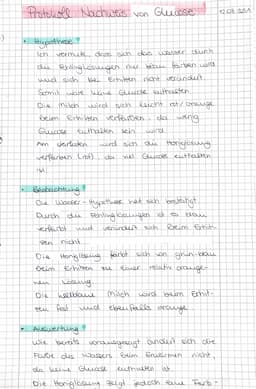 Protokoll Nachweis von Glucose 12.03.2021
• Hypothese:
Ich vermute, dass sich das Wasser durch
die Fehlinglösungen nur blau färben wird
und sich bei Erhitzen nicht verändert.
Somit wäre keine Glucose enthalten
Die Milch wird sich leicht rot/orange
beim Erhitzen verfärben, da wenig
Glucose enthalten sein wird
Am wird sich die Honiglösung
verfärben (rot), da viel Glucose enthalten
ist.
• Beobachtung:
Die Wasser-Hypothese hat sich bestätigt.
Durch die Fehlinglösungen ist es blau
verfärbt und verändert sich beim Erhit-
zen nicht.
Die Honiglösung färbt sich von grün-blau
beim Erhitzen zu einer relativ orange-
nen Lösung.
Die Milch wird beim Erhit-
zen fest und ebenfalls orange.
• Auswertung:
Wie bereits vorausgesagt ändert sich die
Farbe des Wassers beim Erwärmen nicht,
da keine Glucose enthalten ist.
Die Honiglösung zeigt jedoch eine Farb-